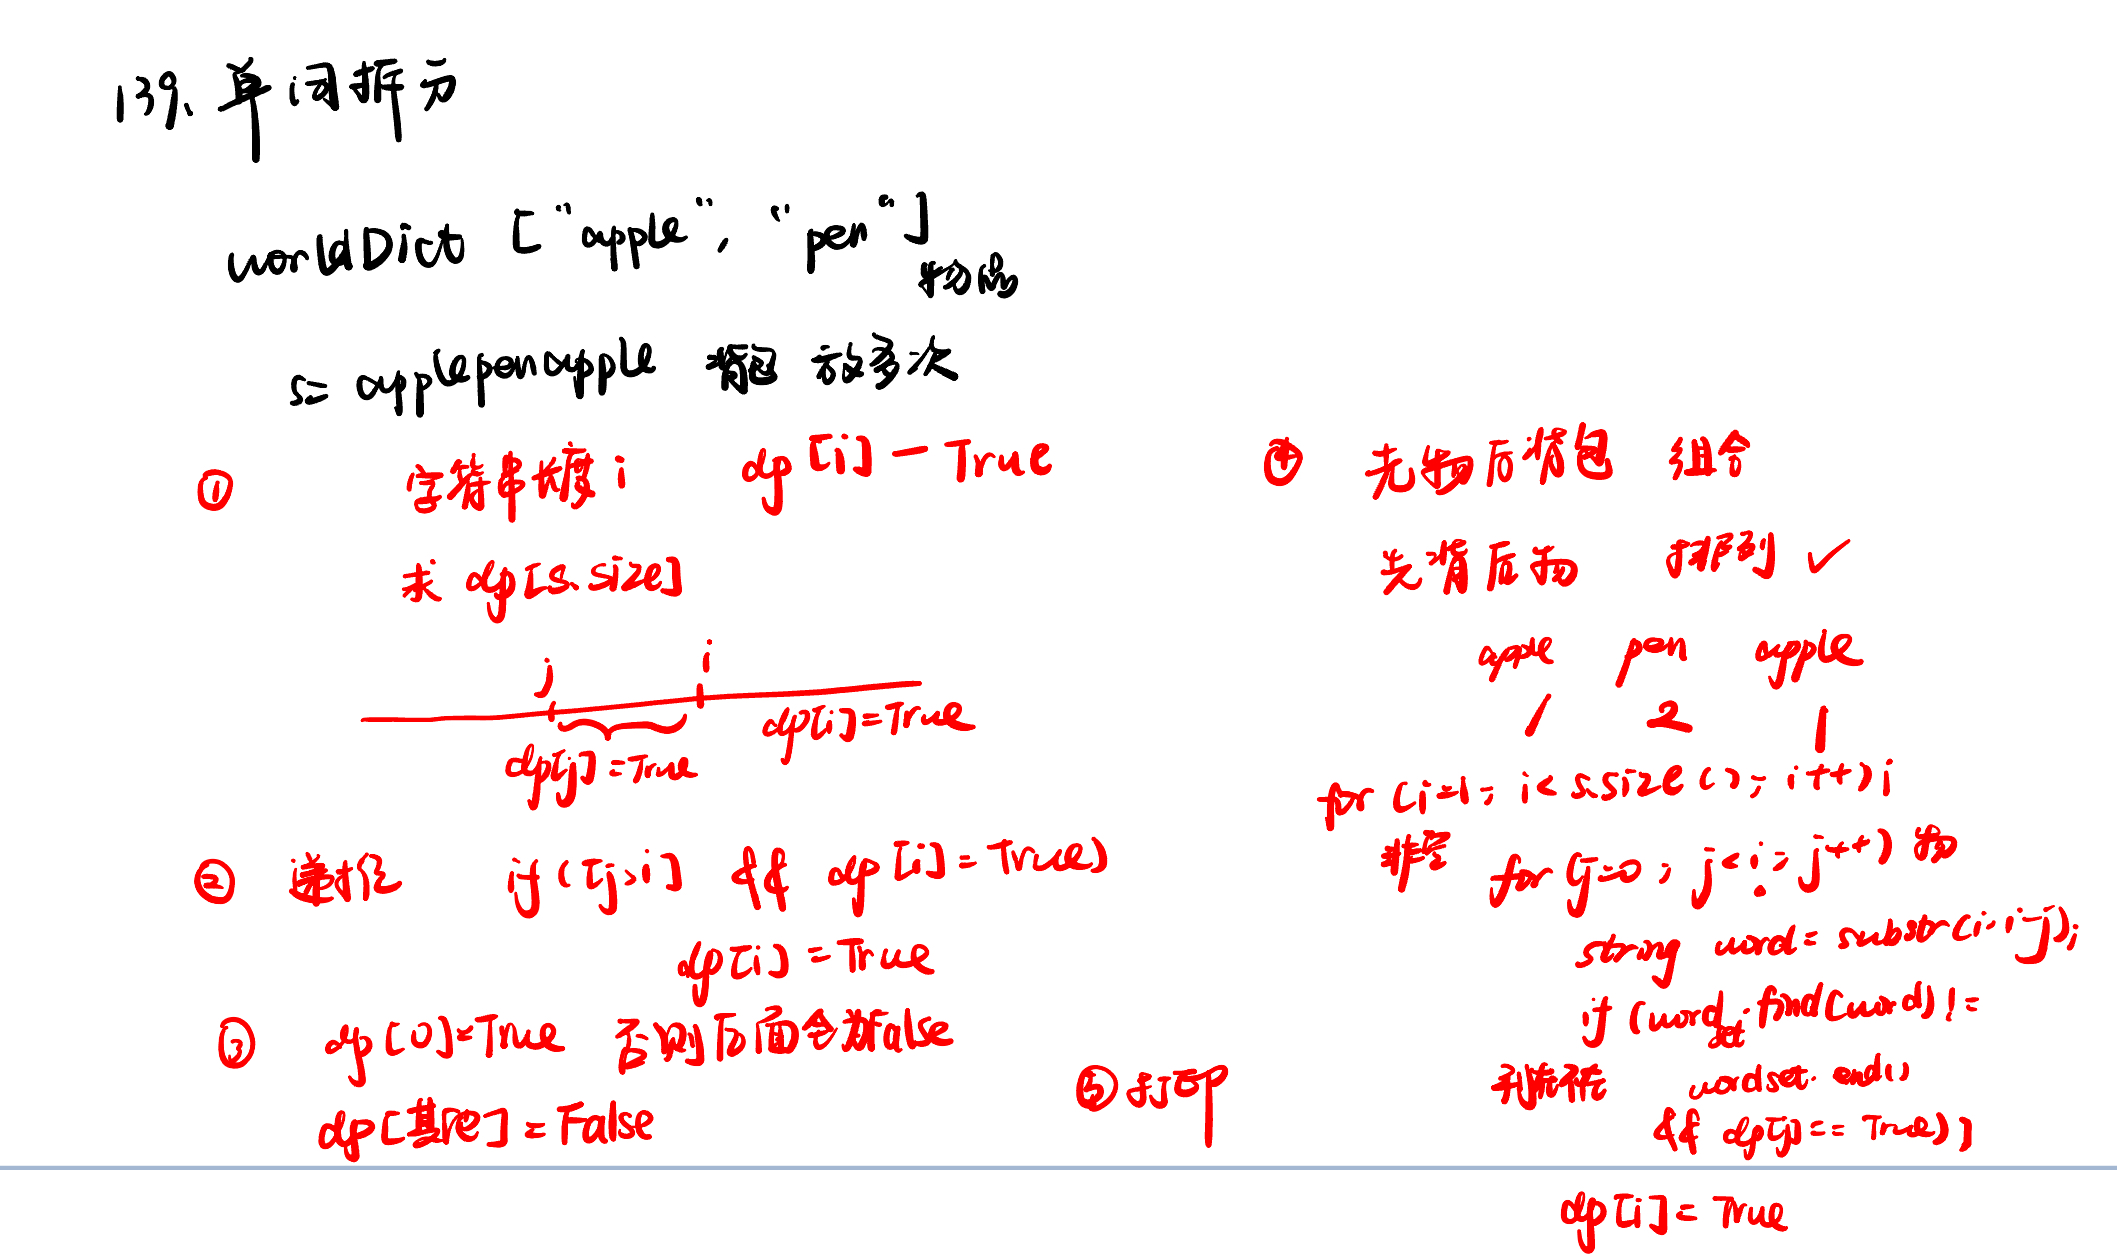 139. 单词拆分
worldDict ["apple", "pen"]
物品
s= applepenapple 背包 放多次
① 字符串长度 i dp[i] — True
求 dp[s.size]
j i
dp[j]=True dp[i]=True
② 递推 if([j,i] && dp[i]=True)
dp[i]=True
③ dp[0]=True 否则后面全为False
dp[其他]=False
④ 先物后背包 组合
先背后物 排列 ✓
apple pen apple
1 2 1
for (i=1; i< s.size(); i++) i
非空 for (j=0; j<i; j++) 物
string word = substr(i, i-j);
if (wordset.find(word) !=
wordset.end()
&& dp[j]== True)]
dp[i]= True
⑤ 打印